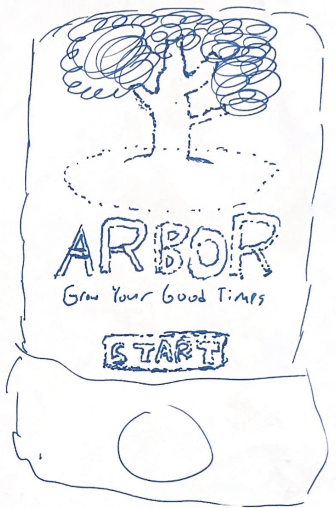 ARBOR
Grow Your Good Times
START